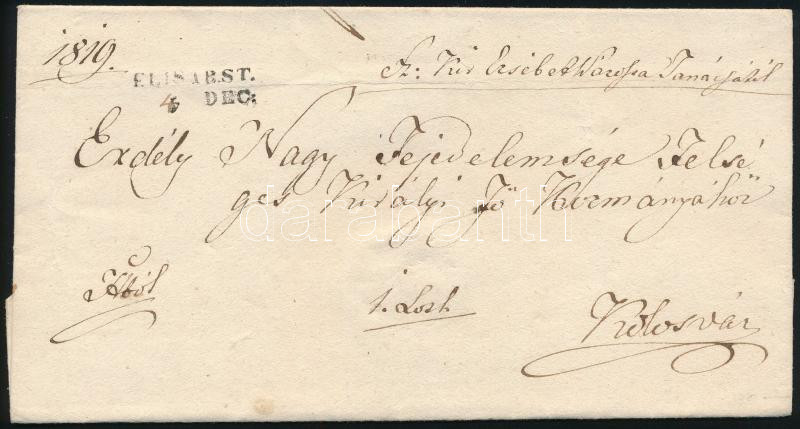 1819.
ELISABST.
4 DEC:
Sz: Kir Ersébet Várossa Tanácsától
Erdély Nagy Fejedelemsége Felsé
ges Királyi Fö Kormányához
1. Loth
Kolosvár
darabanth